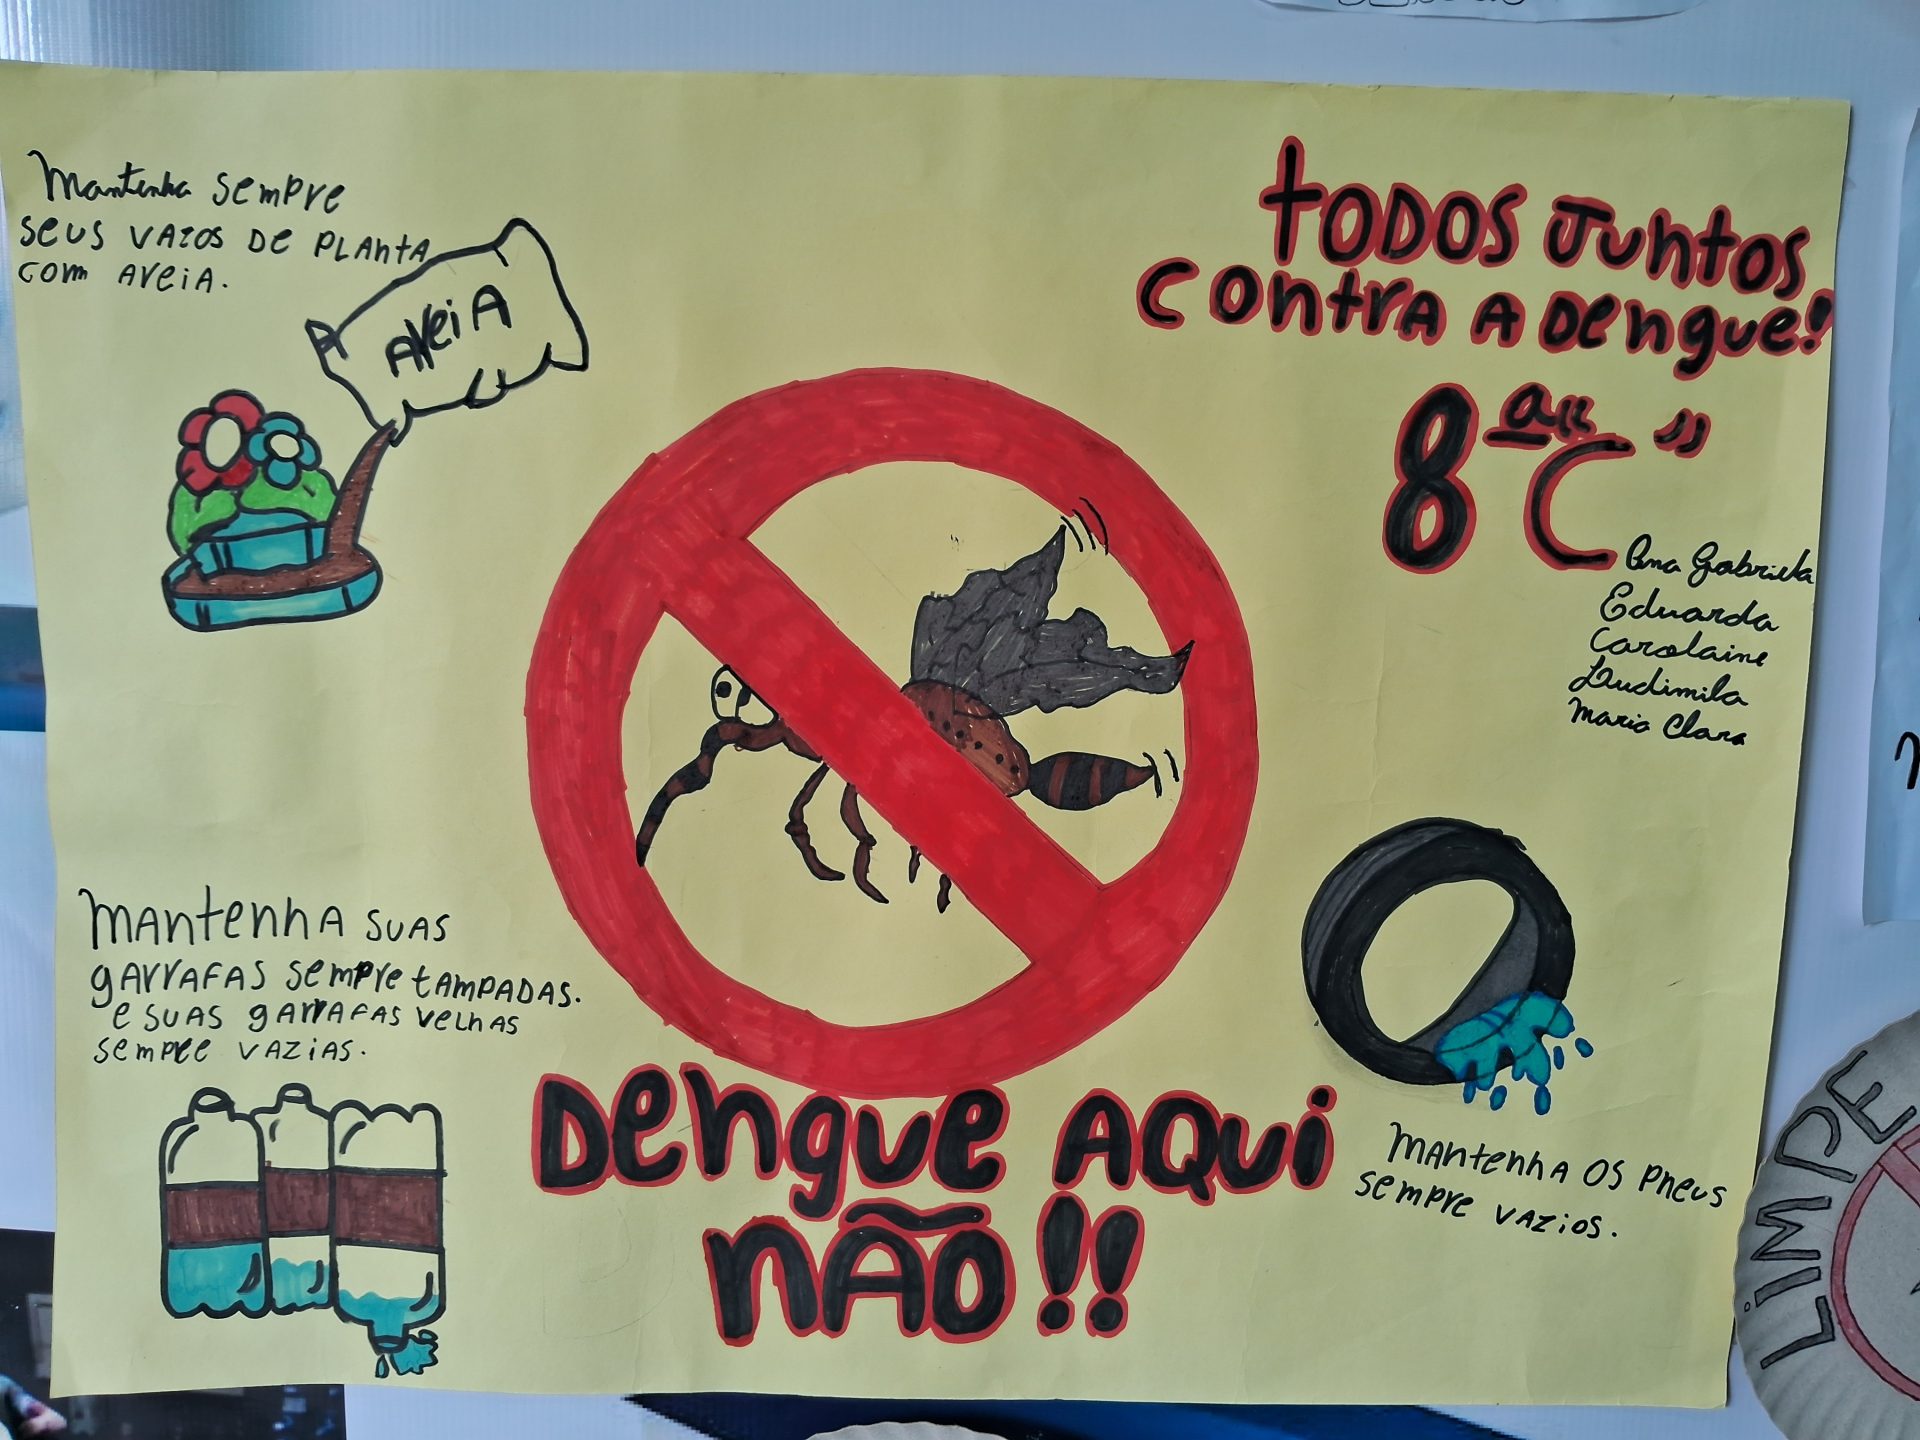 Mantenha sempre
seus vazos de planta
com aveia.
AVEIA
Todos Juntos
contra a Dengue!
8ª "C"
Ana Gabriela
Eduarda
Carolaine
Ludimila
Maria Clara
Mantenha suas
garrafas sempre tampadas.
e suas garrafas velhas
sempre vazias.
Dengue aqui
não!!
Mantenha os pneus
sempre vazios.
LIMPE